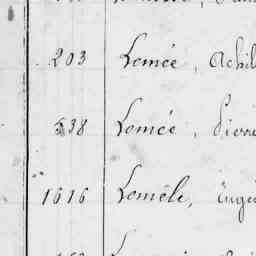 203 Lemée, Achil
538 Lemée, Pierre
1616 Lemêle, Eugè